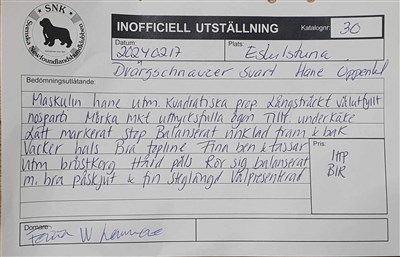 SNK
Svenska Newfoundlandshundklubben
INOFFICIELL UTSTÄLLNING
Katalognr: 30
Datum: 20240217
Plats: Eskilstuna
Dvärgschnauzer svart Hane Öppenkl
Bedömningsutlåtande:
Maskulin hane utm. kvadratiska prop Långsträckt välutfyllt
nosparti Mörka mkt uttrycksfulla ögon Tillr underkäke
Lätt markerat stop Balanserat vinklad fram & bak
Vacker hals Bra topline Fina ben & tassar
utm bröstkorg Hård päls Rör sig balanserat
m. bra påskjut & fin steglängd Välpresenterad
Pris:
1HP
BIR
Domare: